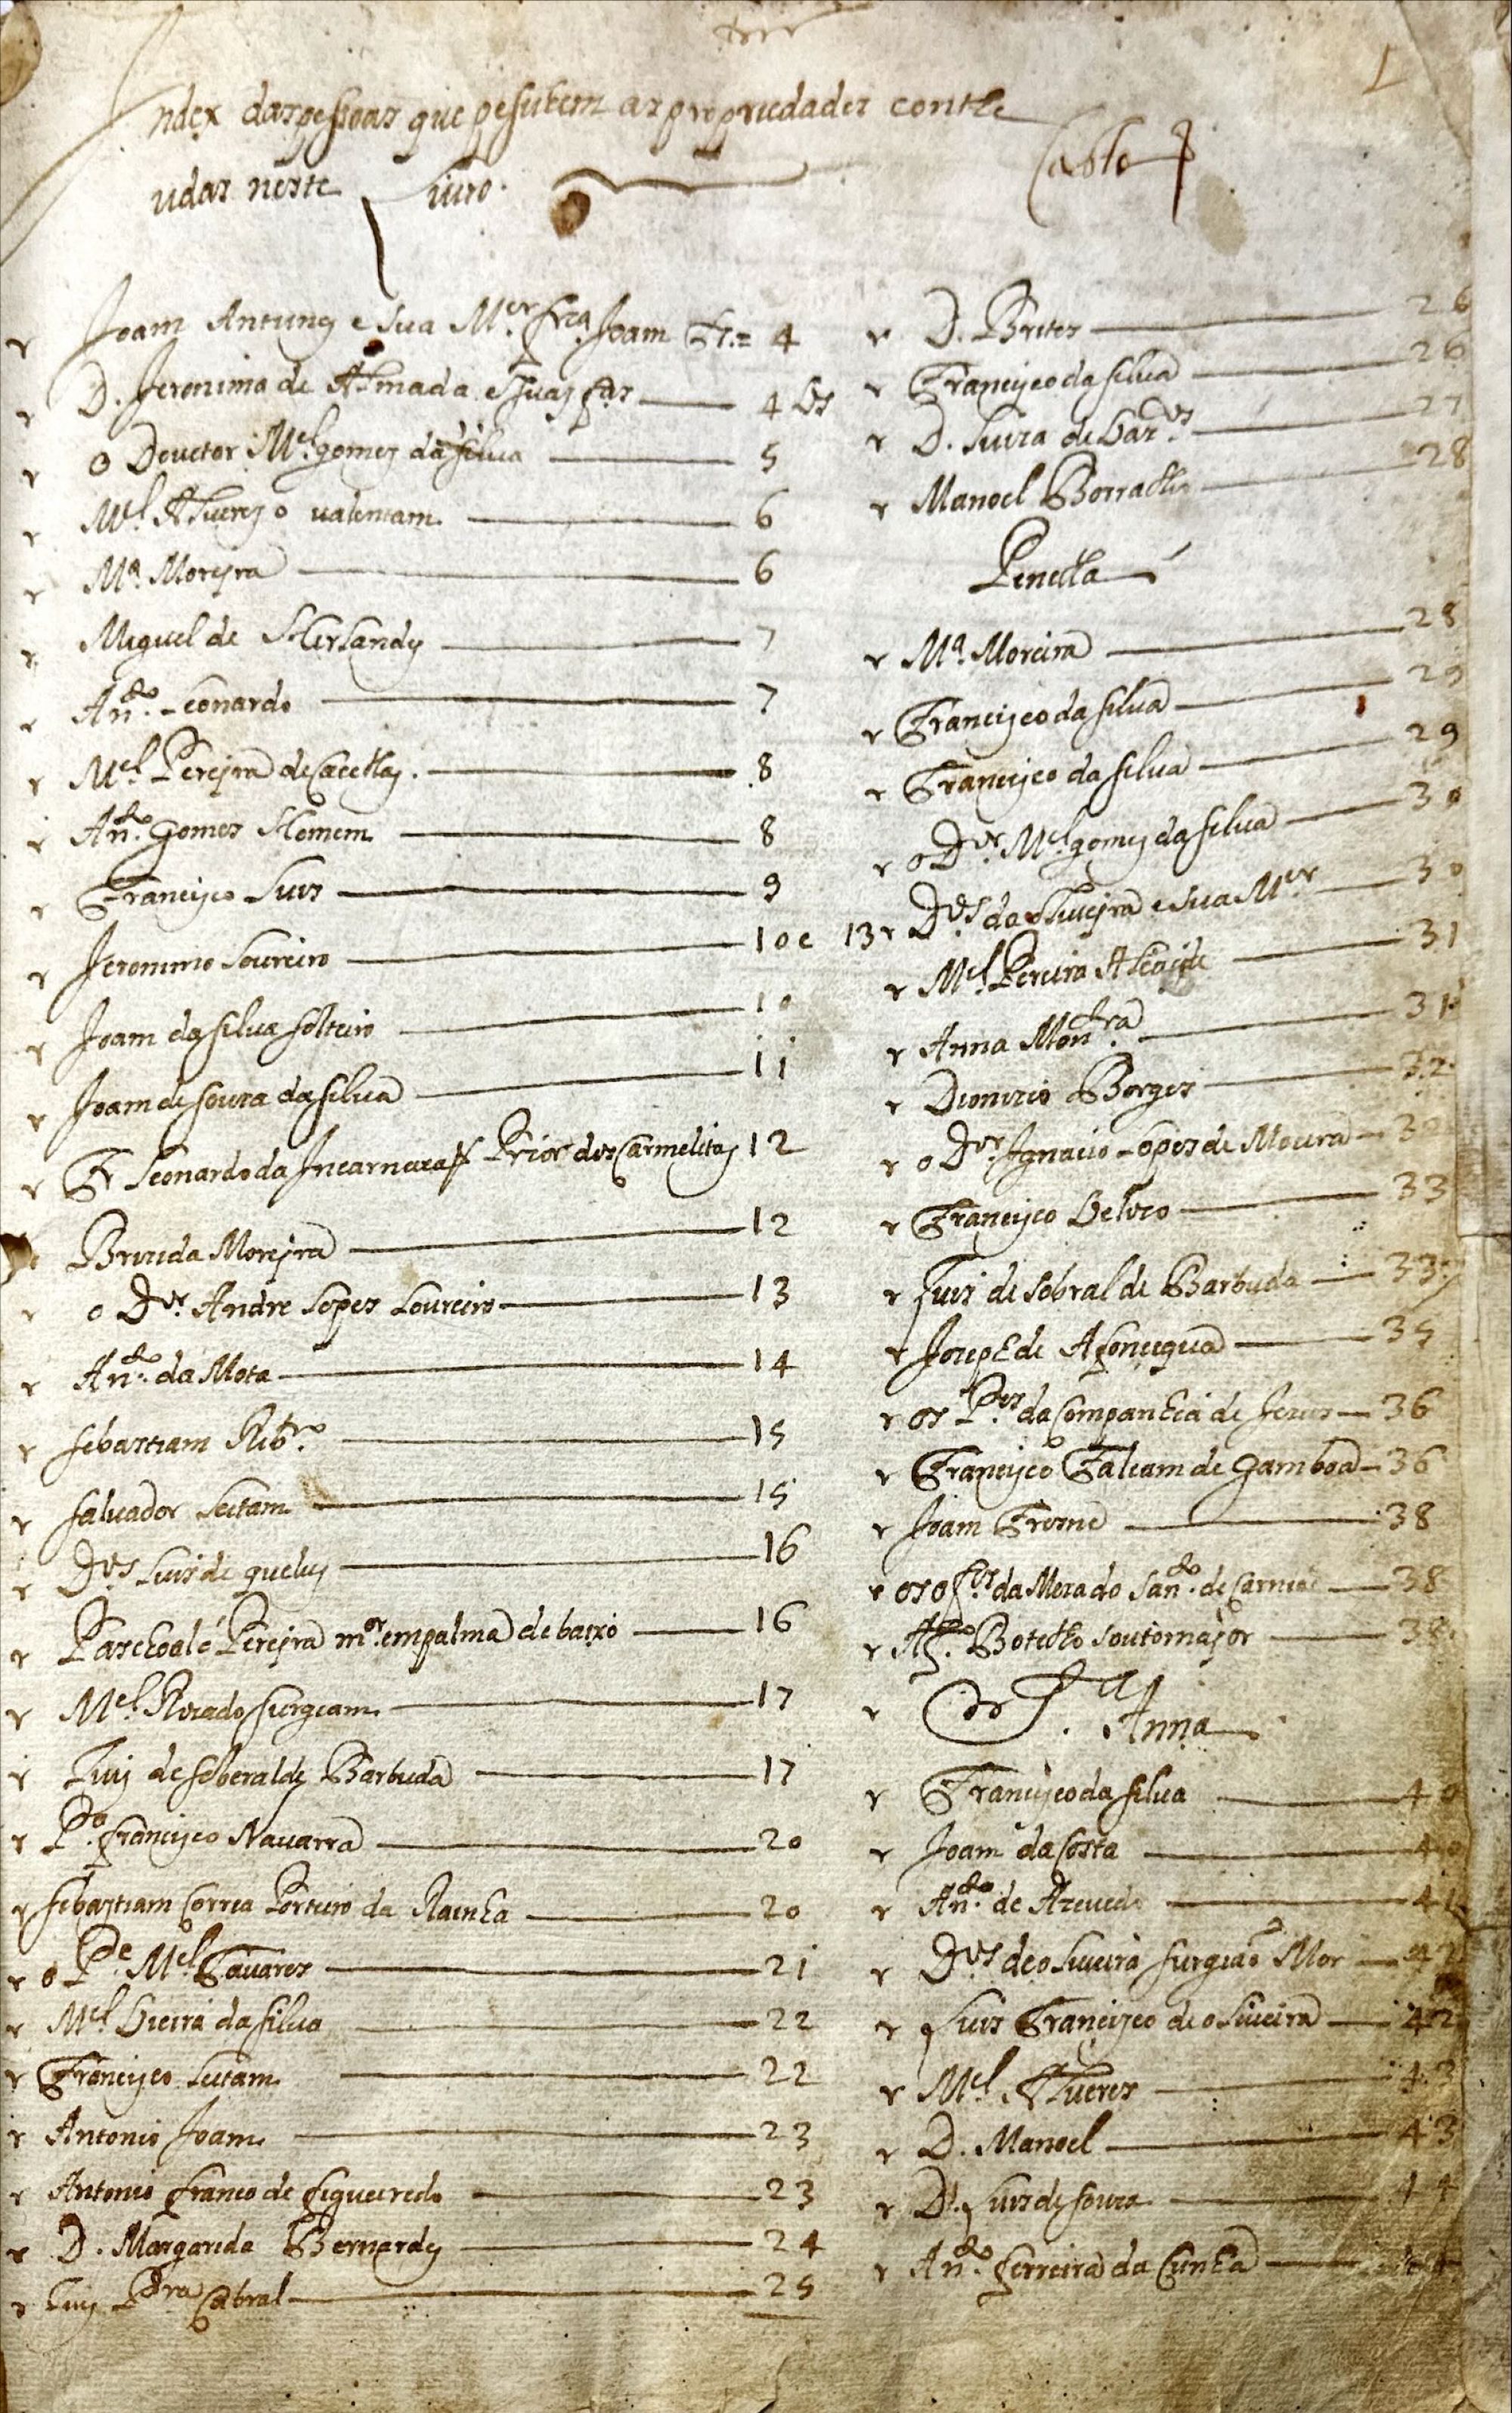 Index das pessoas que pesuhem as propriedades conthe
udas neste Liuro.
Joam Antunes e sua M.er fr.ca Joam 4
D. Jeronima de Almada e suas f.as 4 vs
o Douctor M.el gomes da silua 5
M.el Alueres o valentam 6
M.a Moreyra 6
Miguel de 7
An.to Leonardo 7
M.el Pereyra de Cacellas 8
An.to gomes Homem 8
Francisco Luis 9
Jeronimo Loureiro 10 e 13
Joam da silua solteiro 10
Joam de souza da silua 11
Fr Leonardo da Incarnaçaõ Prior dos Carmelitas 12
Brizida Moreyra 12
o D.or Andre Lopes Loureiro 13
An.to da Mota 14
sebastiam Rib.ro 15
saluador Leitam 15
D.os Luis de quelus 16
Paschoal Pereyra m.or em palma de baixo 16
M.el Rozado surgiam 17
Luis de soberal de Barbuda 17
P.o francisco Nauarra 20
sebastiam Correa Porteiro da Rainha 20
o P.e M.el Tauares 21
M.el Vieira da silua 22
Francisco Leitam 22
Antonio Joam 23
Antonio franco de figueiredo 23
D. Margarida Bernardes 24
Luis P.ra Cabral 25
D. Brites 26
Francisco da silua 26
D. Luiza de 27
Manoel Borralho 28
Penella
M.a Moreira 28
Francisco da silua 29
Francisco da silua 29
o D.or M.el gomes da silua 30
D.os da oliueyra e sua M.er 30
M.el Pereira 31
Anna Mon.tra 31
Dionizio Borges 32
o D.or Ignacio Lopes de Moura 32
Francisco Veloso 33
Luis de sobral de Barbuda 33
Joseph de Afonsequa 35
os P.es da Companhia de Jesus 36
Francisco Falcam de gamboa 36
Joam Fresne 38
os of.es da Meza do San.to de Carnide 38
Af.o Botelho soutomayor 38
de S.ta Anna
Francisco da silua 40
Joam da Costa 40
An.to de Azeuedo 41
D.os de oliueira surgiaõ Mor 42
Luis Francisco de oliueira 42
M.el Alueres 43
D. Manoel 43
D. Luis de souza 44
An.to ferreira da Cunha